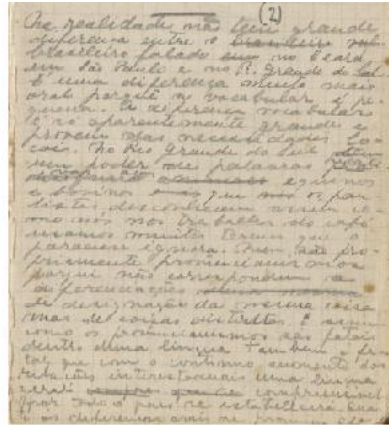 (2)
Na realidade não tem grande
diferença entre o brasileiro
brasileiro falado no Ceará
em São Paulo e no R. Grande do Sul
É uma diferença muito mais
oral porque no vocabular é pe-
quena. A diferença vocabular
é só aparentemente grande e
provem das necessidades lo-
cais. No Rio Grande do Sul
um poder de palavras
equinos
e bovinos que os pau-
listas desconhecem assim co-
mo nós nos trabalhos do café
usamos muitos termos que o
paraense ignora. Porem não pro-
priamente provincianismos
porquê não correspondem a
diferenciações
de designação da mesma coisa
mas de coisas distintas e assim
como os provincianismos são fatais
dentro duma lingua tambem é fa-
tal que com o continuo aumento das
relações interestaduais uma lingua
geral compreensivel
por todo o país se estabelecerá